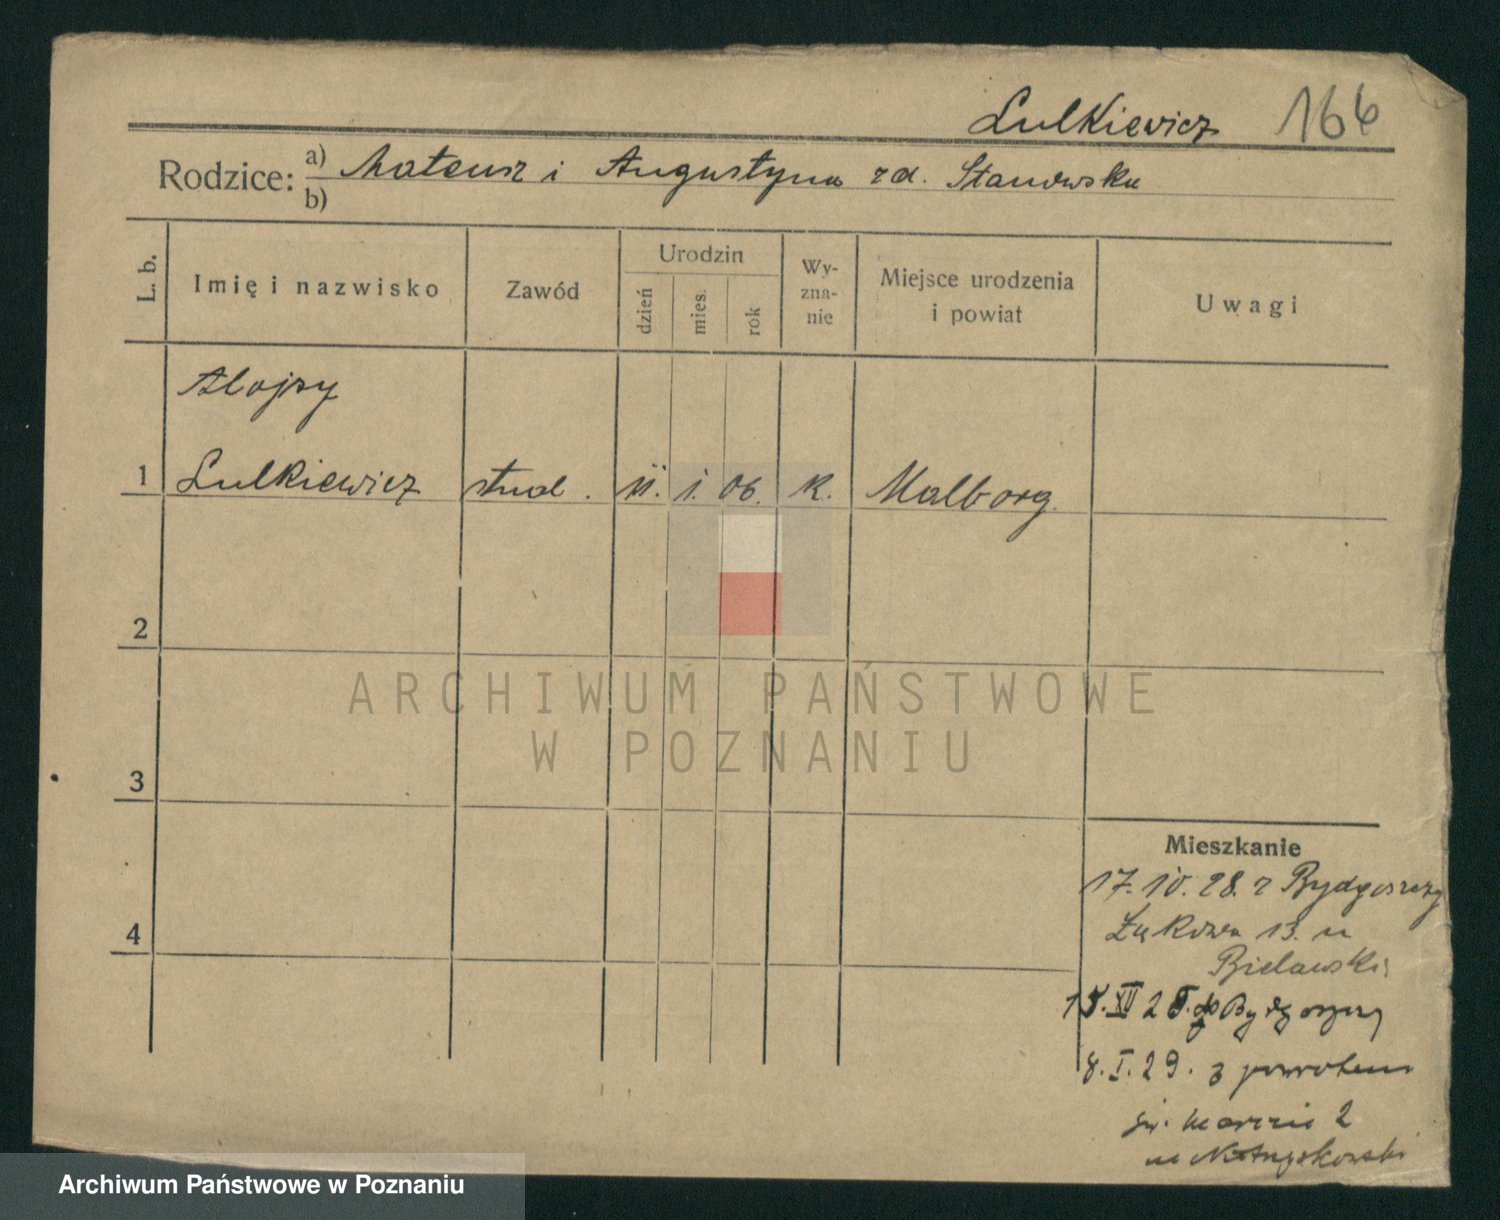 Lulkiewicz 166
Rodzice: a) Mateusz i Augustyna zd. Stanowska
b)
L. b.
Imię i nazwisko
Zawód
Urodzin
dzień
mies.
rok
Wy-
zna-
nie
Miejsce urodzenia
i powiat
Uwagi
Alojzy
1 Lulkiewicz stud. 11. 1. 06. k. Malborg.
2
3
4
ARCHIWUM PAŃSTWOWE
W POZNANIU
Mieszkanie
17. 10. 28. z Bydgoszczy
13. u
Bielawski
15. XII 28. do Bydgoszczy
8. I. 29. z powrotem
św. Marcin 2
u
Archiwum Państwowe w Poznaniu